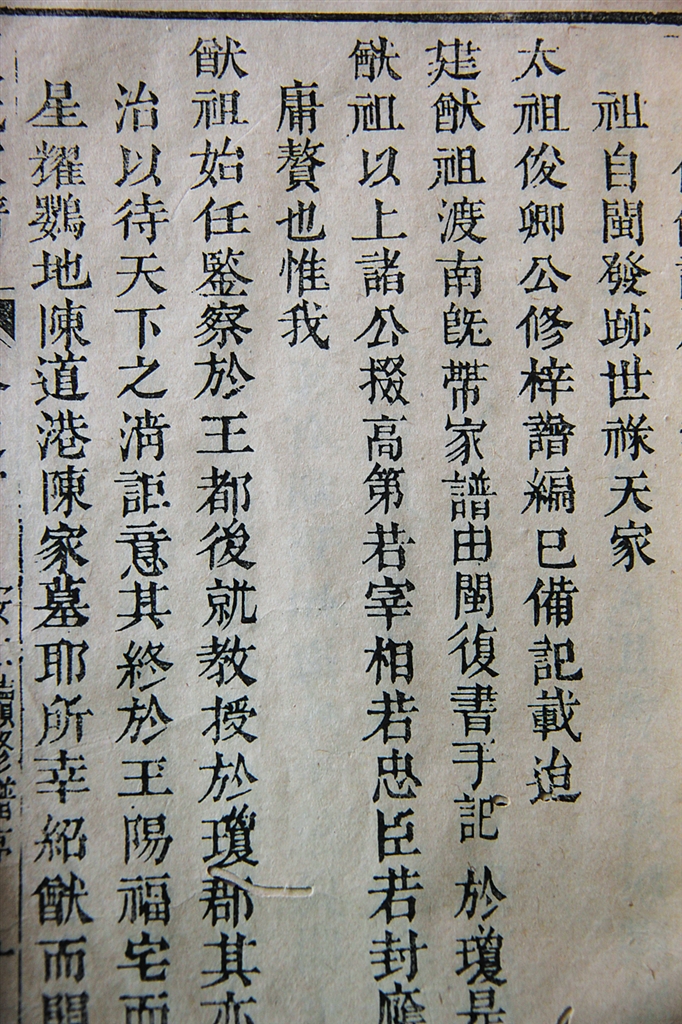 祖自閩發跡世祿天家
太祖俊卿公修梓譜編已備記載迨
建猷祖渡南旣帶家譜由閩復書手記於瓊是
猷祖以上諸公掇高第若宰相若忠臣若封
庸贅也惟我
猷祖始任鑒察於王都後就教授於瓊郡其亦
治以待天下之淸詎意其終於王陽福宅而
星耀鸚地陳道港陳家墓耶所幸紹猷而開